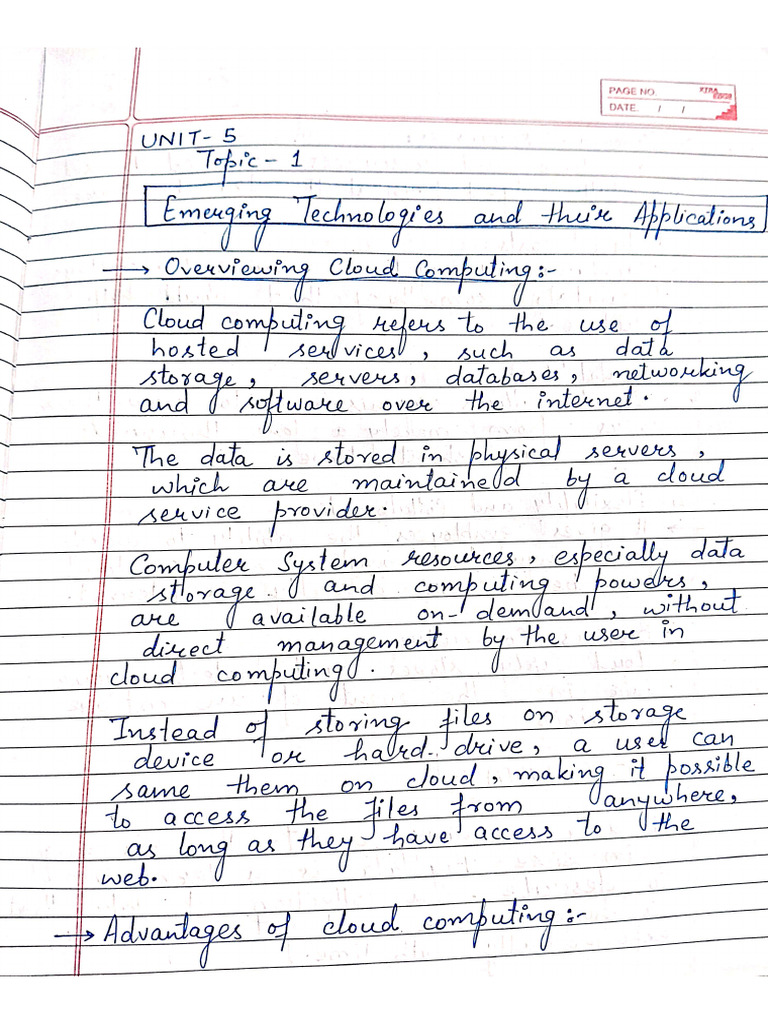 PAGE NO.
DATE. / /
UNIT- 5
Topic - 1
Emerging Technologies and their Applications
→ Overviewing Cloud Computing:-
Cloud computing refers to the use of
hosted services, such as data
storage, servers, databases, networking
and software over the internet.
The data is stored in physical servers,
which are maintained by a cloud
service provider.
Computer System resources, especially data
storage and computing powers,
are available on-demand, without
direct management by the user in
cloud computing.
Instead of storing files on storage
device or hard drive, a user can
same them on cloud, making it possible
to access the files from anywhere,
as long as they have access to the
web.
→ Advantages of cloud computing:-